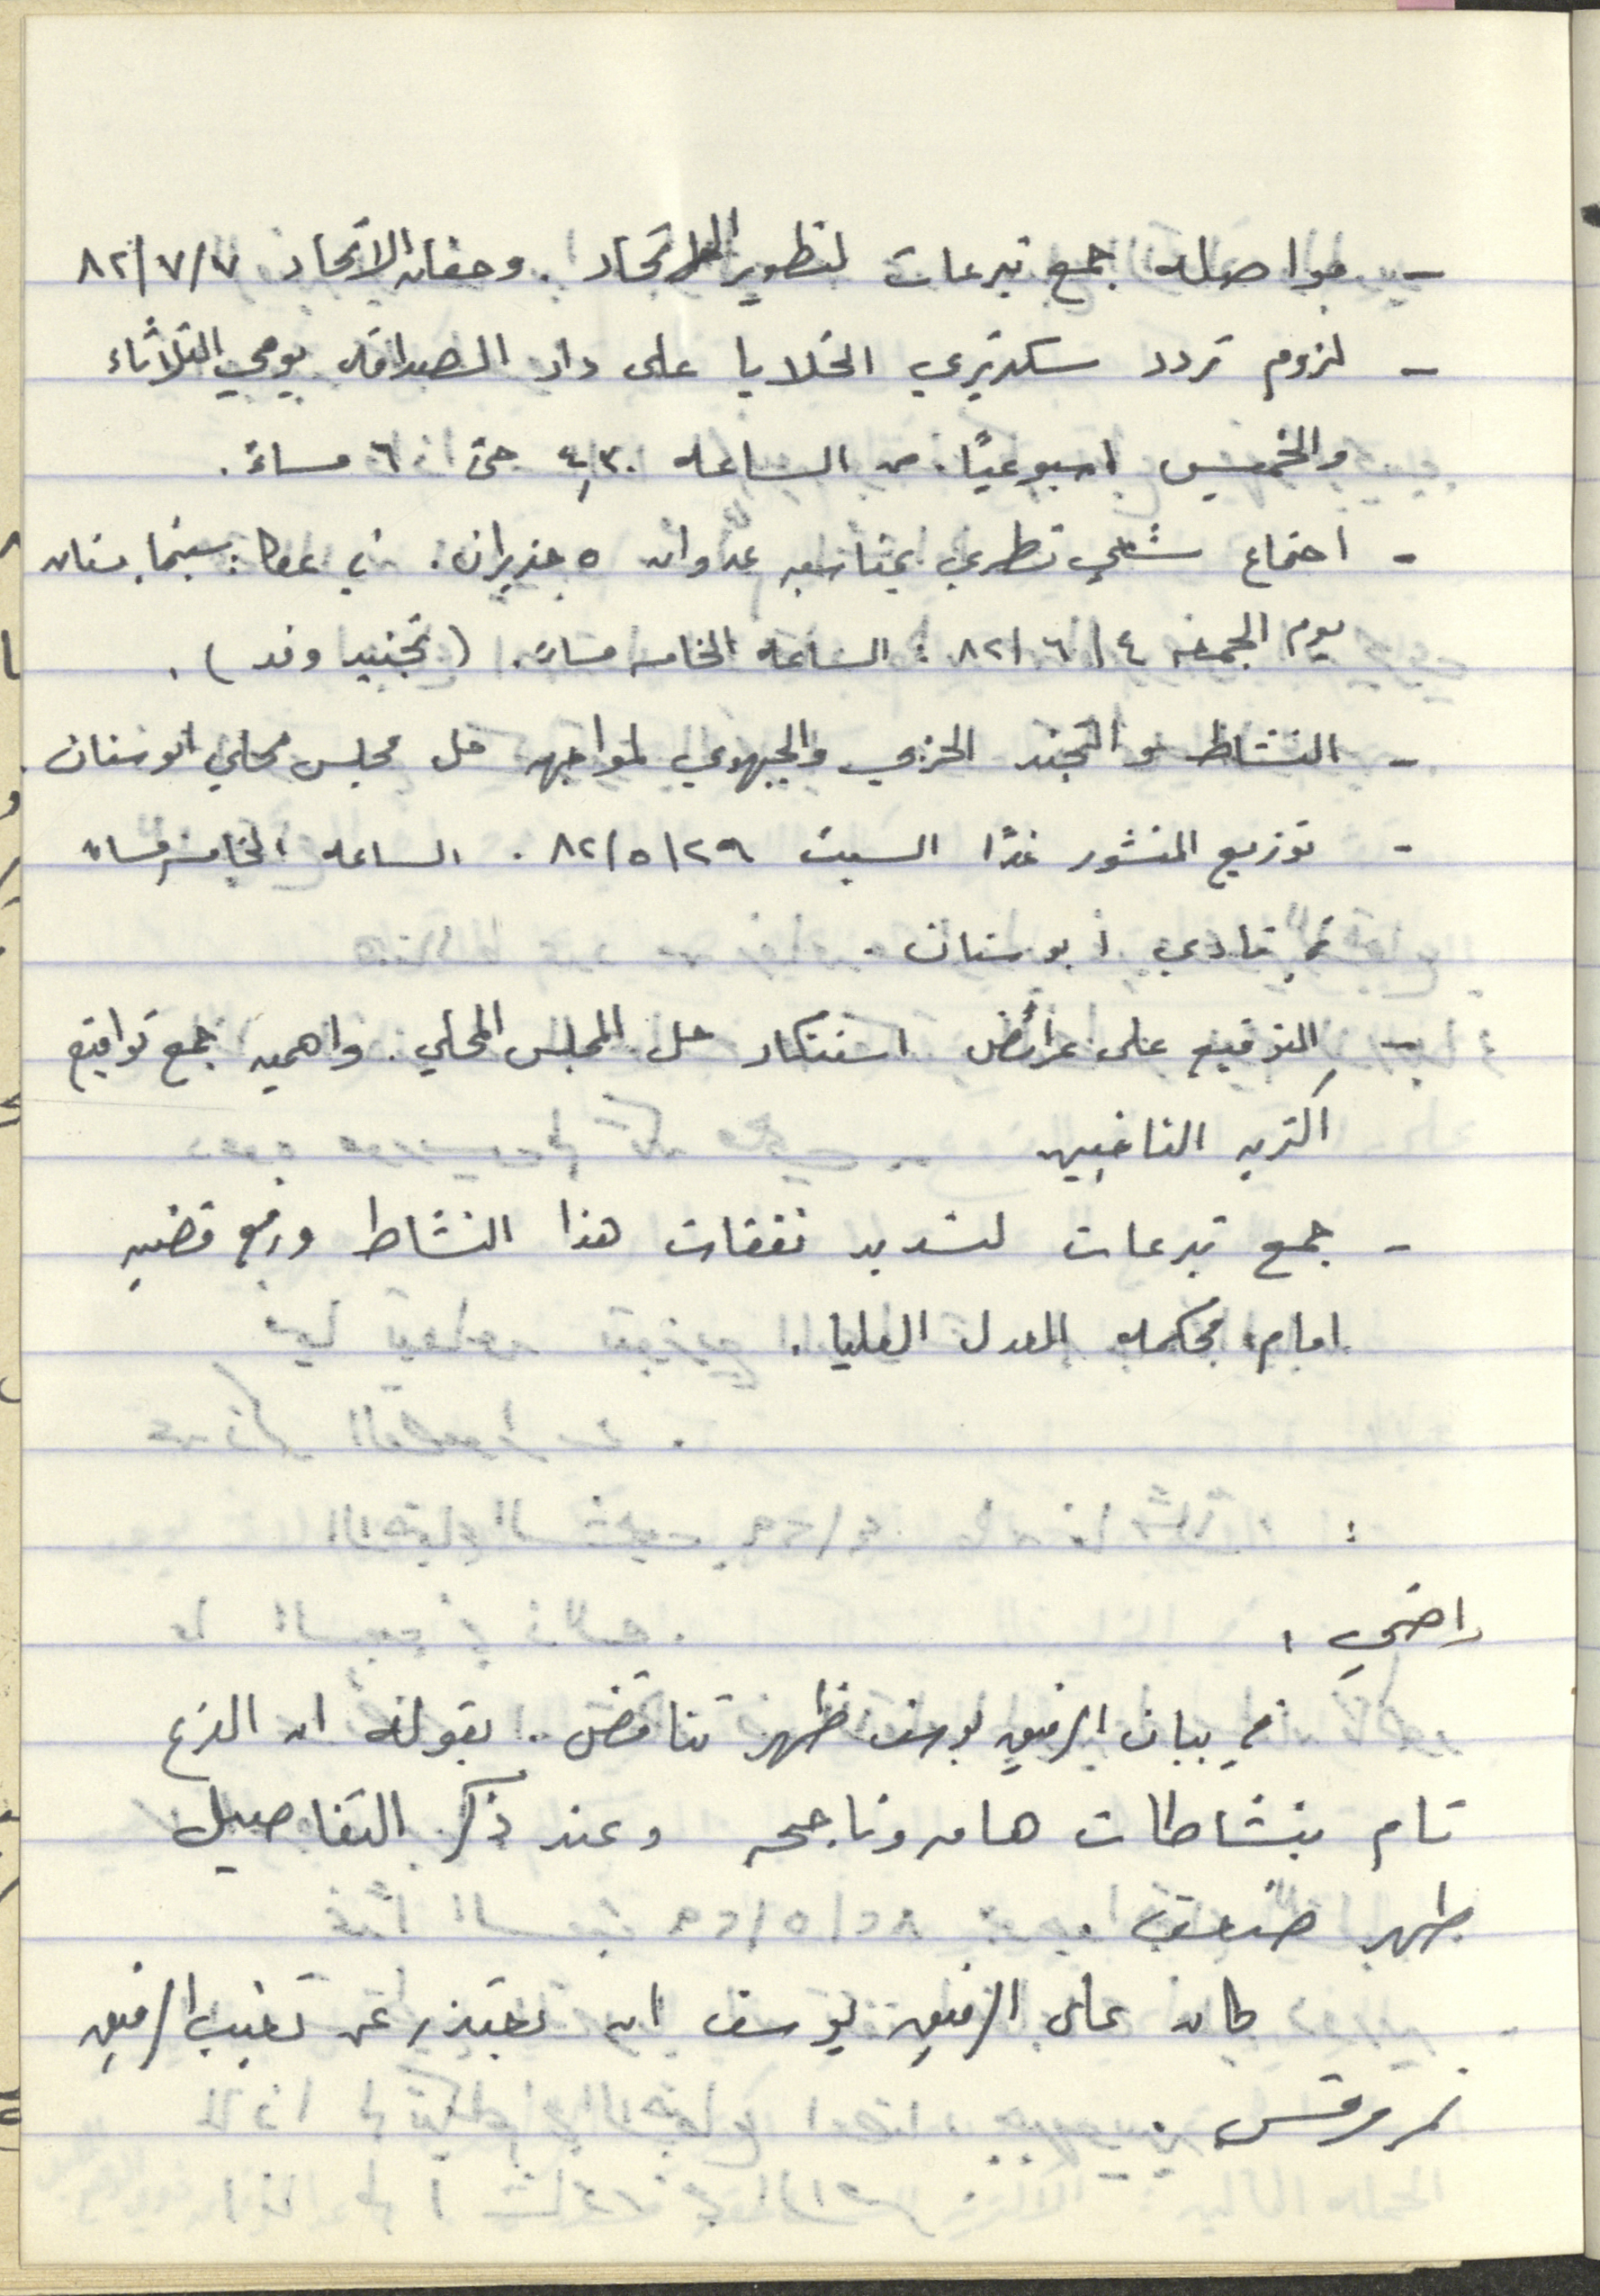 - مواصله جمع تبرعات لتطوير الاتحاد. وحفله الاتحاد ٨٢/٧/٧
- لزوم تردد سكرتيري الخلايا على دار الصداقه يومي الثلاثاء
والخميس اسبوعيًا. من الساعه ٤,٣٠ حتى ٦ مساءً.
- اجتماع شعبي قطري بمناسبه عدوان ٥ حزيران. في عكا: سينما بستان
يوم الجمعه ٨٢/٦/٤ الساعه الخامسه مساءً. (تجنيد وفد).
- النشاط والتجند الحزبي والجبهوي لمواجهه حل مجلس محلي ابوسنان.
- توزيع المنشور غدًا السبت ٨٢/٥/٢٩. الساعه الخامسه مساءً
في نادي ابوسنان.
- التوقيع على عرائض استنكار حل المجلس المحلي. واهميه جمع تواقيع
اكثريه الناخبين
- جمع تبرعات لتسديد نفقات هذا النشاط ورفع قضيه
امام محكمه العدل العليا.
:
راضي:
في بيان الرفيق يوسف ظهر تناقض. بقوله ان الفرع
قام بنشاطات هامه وناجحه وعند ذكر التفاصيل
يظهر ضعف.
كان على الرفيق يوسف ان يعتذر عن تغيب الرفيق
نمر مرقس.